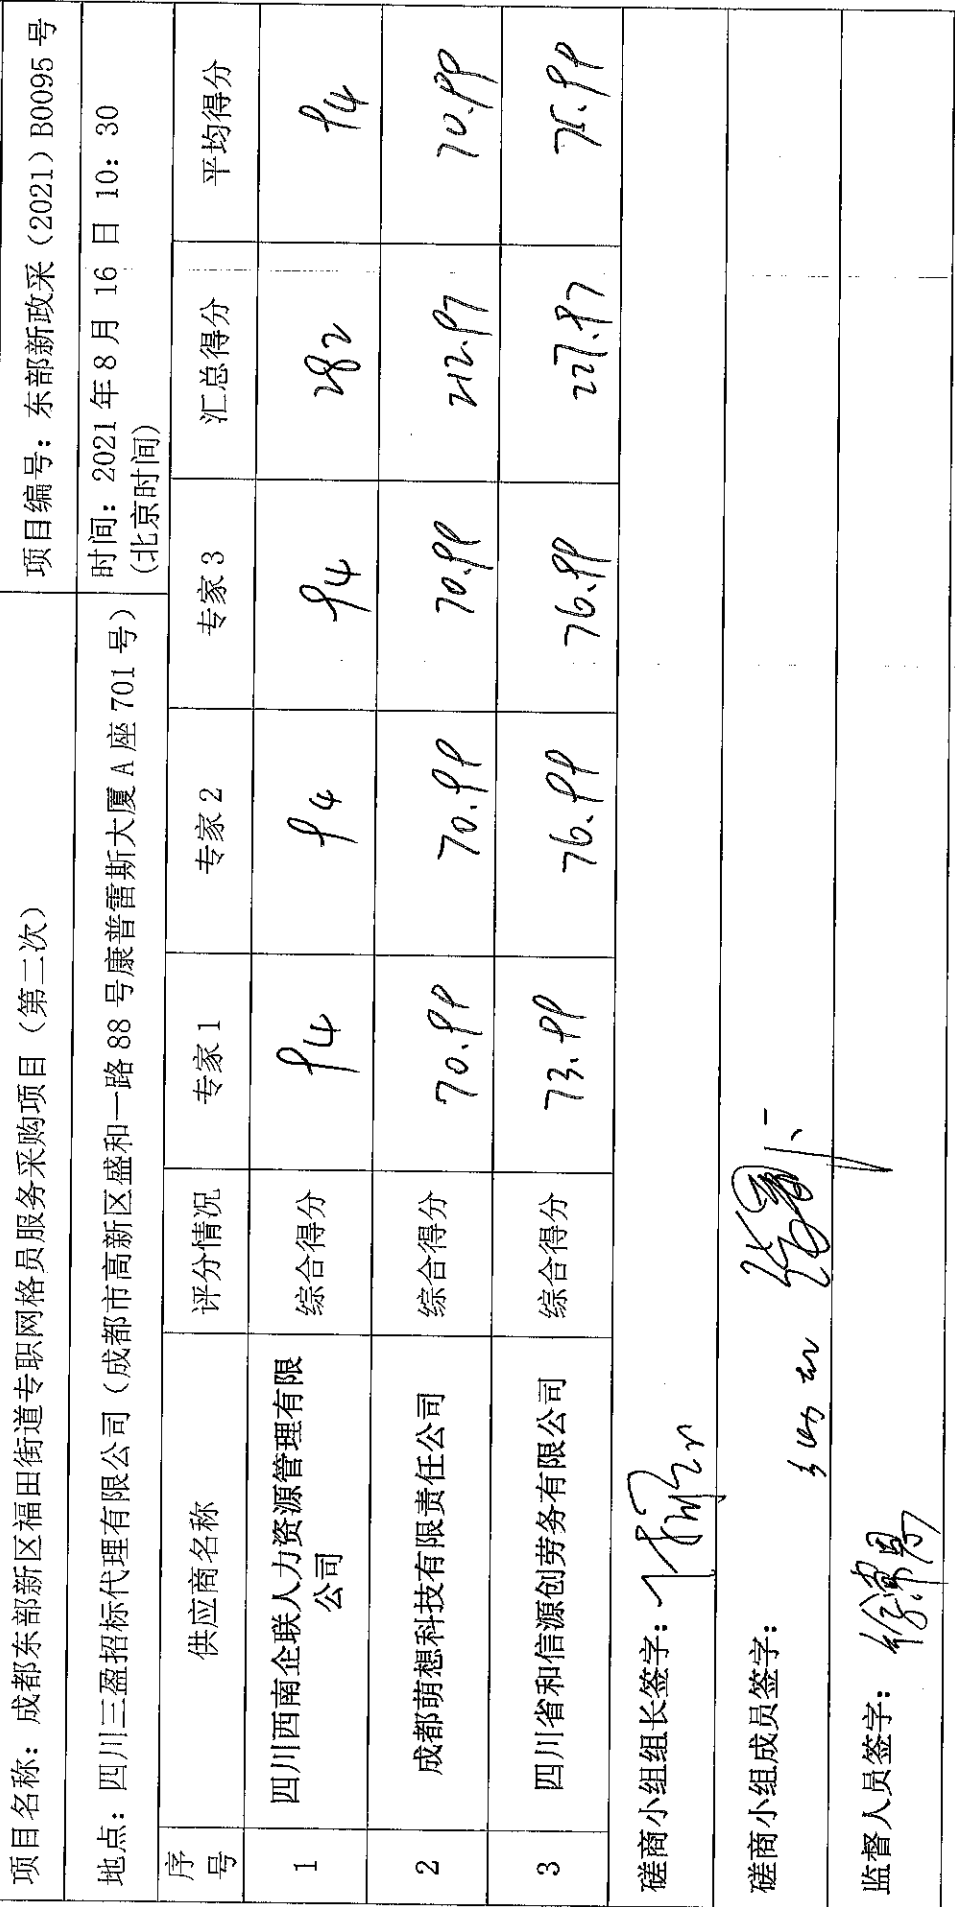 项目名称：成都东部新区福田街道专职网格员服务采购项目（第二次） 项目编号：东部新政采（2021）B0095 号
地点：四川三盈招标代理有限公司（成都市高新区盛和一路 88 号康普雷斯大厦 A 座 701 号） 时间：2021 年 8 月 16 日 10：30
（北京时间）
序号 供应商名称 评分情况 专家 1 专家 2 专家 3 汇总得分 平均得分
1 四川西南企联人力资源管理有限公司 综合得分 94 94 94 282 94
2 成都萌想科技有限责任公司 综合得分 70.99 70.99 70.99 212.97 70.99
3 四川省和信源创劳务有限公司 综合得分 73.99 76.99 76.99 227.97 75.99
磋商小组组长签字：
磋商小组成员签字：
监督人员签字：